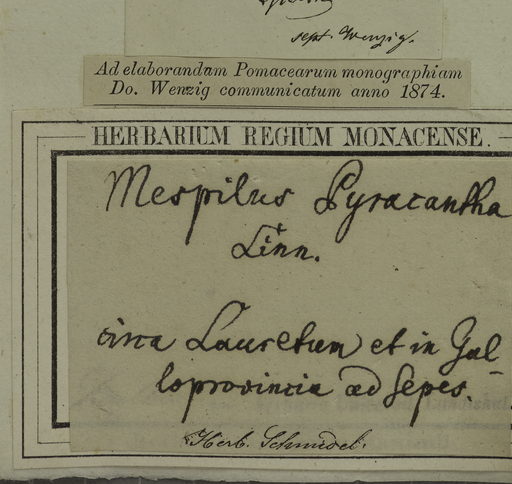 sept. Wenzig.
Ad elaborandam Pomacearum monographiam
Do. Wenzig communicatum anno 1874.
HERBARIUM REGIUM MONACENSE.
Mespilus Pyracantha
Linn.
circa Lauretum et in Gal-
loprovincia ad sepes.
Herb. Schmidel.